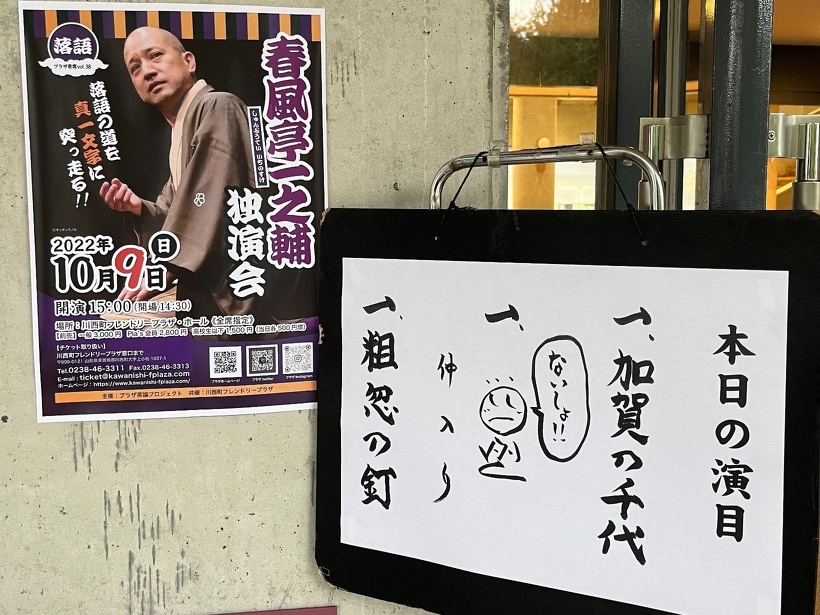 落語
プラザ寄席vol.38
落語の道を
真一文字に
突っ走る!!
春風亭一之輔
しゅんぷうてい いちのすけ
独演会
©キッチンミノル
2022年
10月9日
日
開演 15:00 (開場 14:30)
場所:川西町フレンドリープラザ・ホール《全席指定》
【前売】一般 3,000円 Pal's会員 2,800円 高校生以下 1,500円 (当日各500円増)
【チケット取り扱い】
川西町フレンドリープラザ窓口まで
〒999-0121 山形県東置賜郡川西町大字上小松 1037-1
Tel.0238-46-3311 Fax.0238-46-3313
E-mail : ticket@kawanishi-fplaza.com
ホームページ : https://www.kawanishi-fplaza.com/
プラザホームページ
プラザ twitter
プラザ Instagram
主催:プラザ茶論プロジェクト 共催:川西町フレンドリープラザ
本日の演目
一、加賀の千代
一、
ないしょ!!
仲入り
一、粗忽の釘